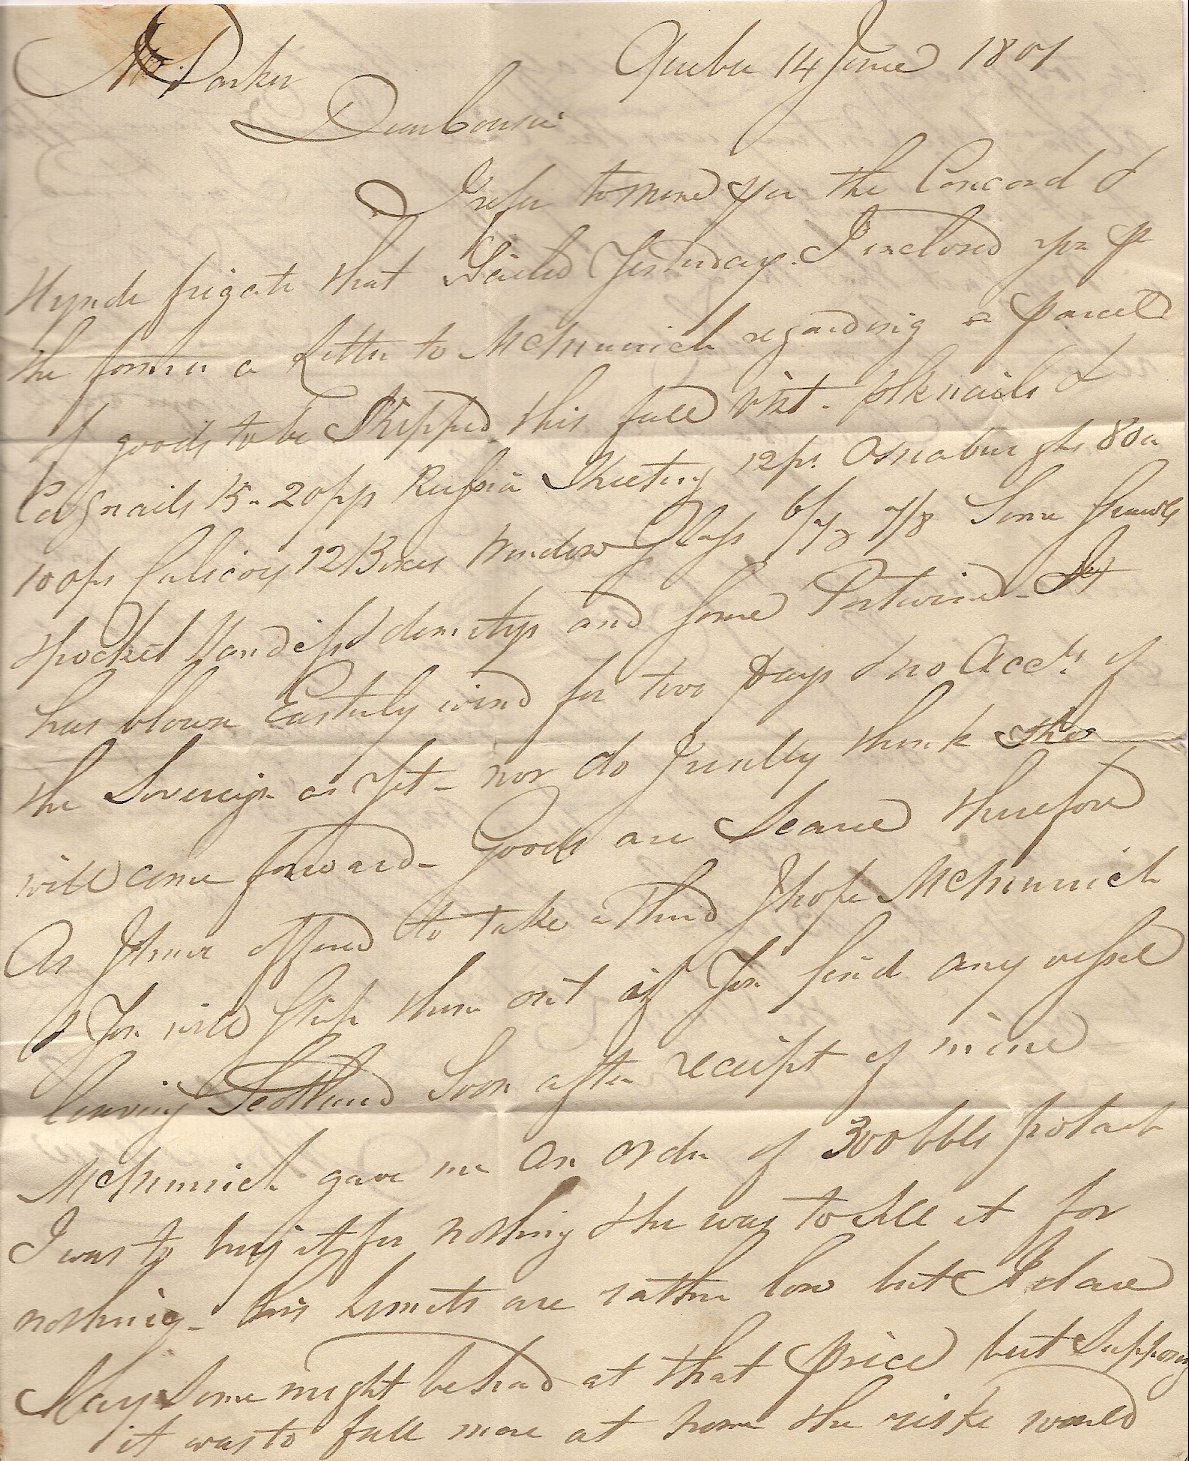 Mr Parker Quebec 14 June 1801
Dear Cousin
I refer to mine pr the Concord &
Hynde frigate that Sailed Yesterday. I inclosed you pr
the former a Letter to McInnurich regarding a parcel
of goods to be Shipped this fall vizt.
nails 15-20 ps Russia Sheeting 12 ps Osnaburghs 80 a
100 ps Calicoes 12 Boxes Window Glass 6/7 & 7/8 Some Shawls
& pocket Handkfs dimitys and some Portwine - It
has blown Easterly wind for two days & no Acctts of
the Sovereign as Yet - nor do I really think She
will come forward - Goods are Scarce therefore
As I have offered to take a Third I hope McInnurich
& You will Ship them out if You find any vessel
leaving Scotland Soon after receipt of mine
McInnurich gave me an order of 300 bbls potash
I was to buy it for nothing & he was to sell it for
nothing - his Limits are rather low but I dare
Say Some might be had at that price but Supposing
it was to fall more at home the riske would